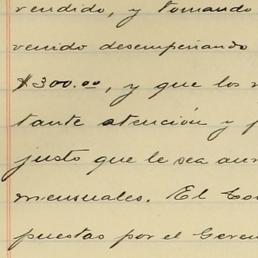 vendido, y tomando
venido desempeñando
$300.00, y que los
tante atención y
justo que le sea
mensuales. El
puestas por el